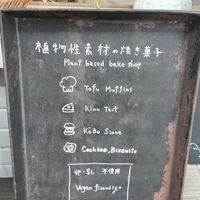 植物性素材の焼き菓子
Plant based bake shop
Tofu Muffins
Kinu Tart
KōBo Scone
Cookies, Biscuits
卵・乳 不使用
Vegan friendly